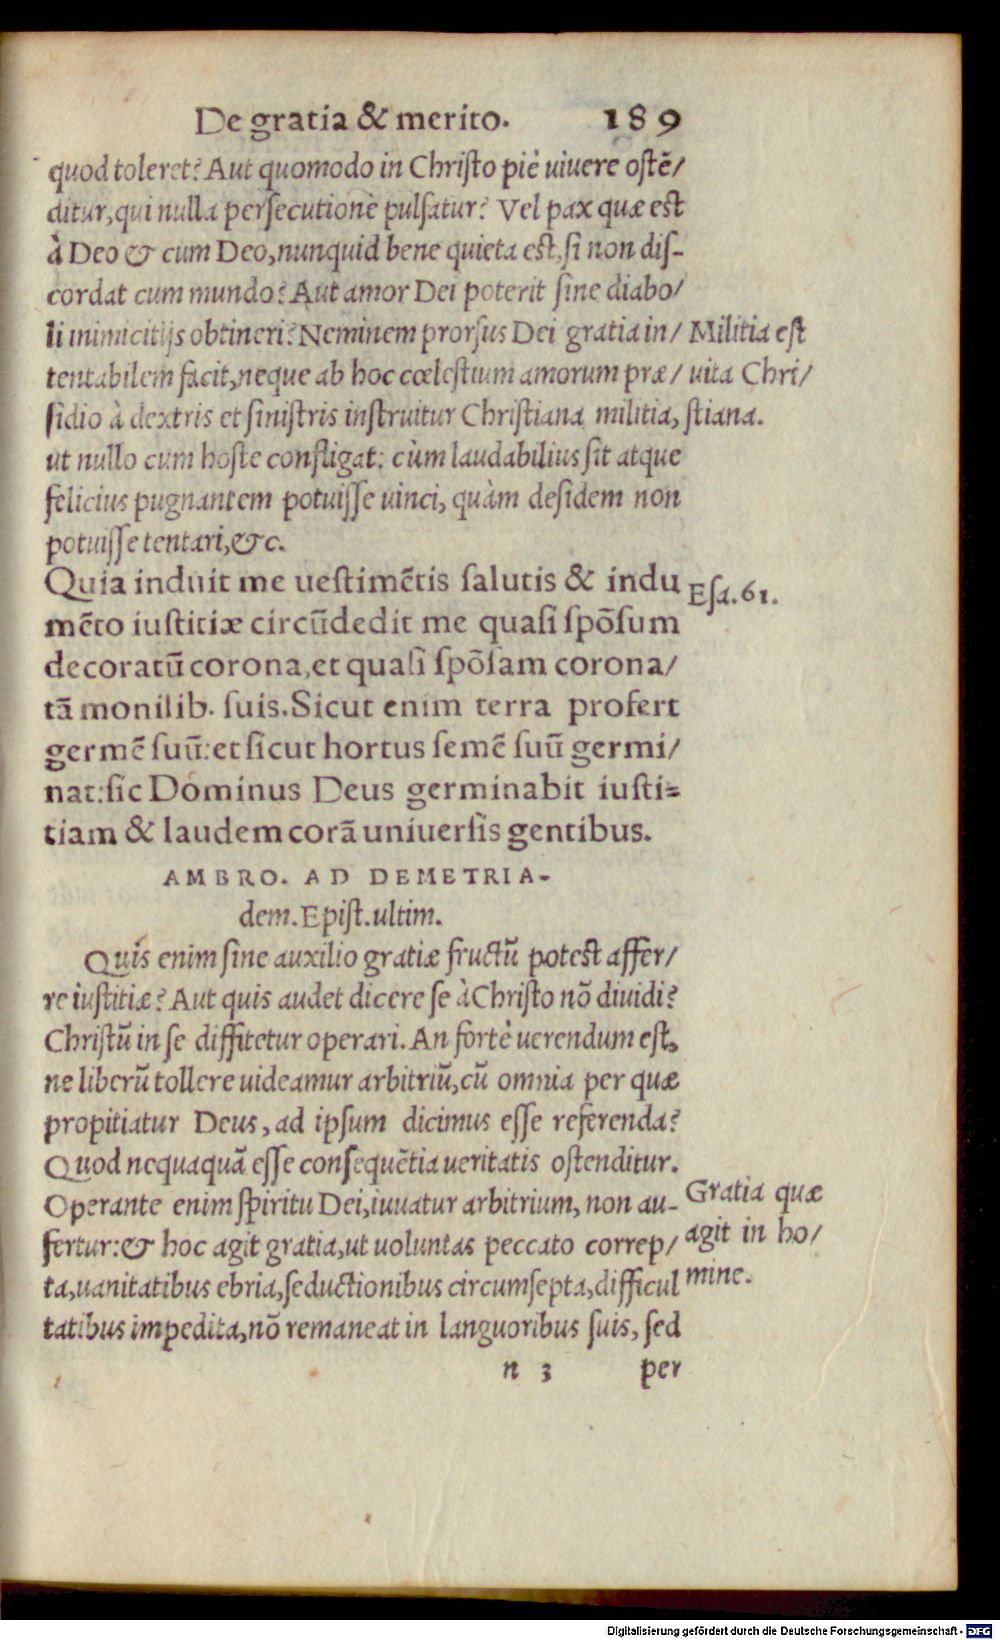 De gratia & merito. 189
quod toleret? Aut quomodo in Christo piè uiuere ostē/
ditur, qui nulla persecutione pulsatur? Vel pax quæ est
à Deo & cum Deo, nunquid bene quieta est, si non dis-
cordat cum mundo? Aut amor Dei poterit sine diabo/
li inimicitijs obtineri? Neminem prorsus Dei gratia in/
Militia est
tentabilem facit, neque ab hoc cœlestium amorum præ/
uita Chri/
sidio à dextris et sinistris instruitur Christiana militia,
stiana.
ut nullo cum hoste confligat: cùm laudabilius sit atque
felicius pugnantem potuisse uinci, quàm desidem non
potuisse tentari, &c.
Quia induit me uestimētis salutis & indu
Esa. 61.
mēto iustitiæ circūdedit me quasi spōsum
decoratū corona, et quasi spōsam corona/
tā monilib. suis. Sicut enim terra profert
germē suū: et sicut hortus semē suū germi/
nat: sic Dominus Deus germinabit iusti-
tiam & laudem corā uniuersis gentibus.
AMBRO. AD DEMETRIA-
dem. Epist. ultim.
Quis enim sine auxilio gratiæ fructū potest affer/
re iustitiæ? Aut quis audet dicere se à Christo nō diuidi?
Christū in se diffitetur operari. An fortè uerendum est,
ne liberū tollere uideamur arbitriū, cū omnia per quæ
propitiatur Deus, ad ipsum dicimus esse referenda?
Quod nequaquā esse consequētia ueritatis ostenditur.
Operante enim spiritu Dei, iuuatur arbitrium, non au-
Gratia quæ
fertur: & hoc agit gratia, ut uoluntas peccato correp/
agit in ho/
ta, uanitatibus ebria, seductionibus circumsepta, difficul
mine.
tatibus impedita, nō remaneat in languoribus suis, sed
n 3 per
Digitalisierung gefördert durch die Deutsche Forschungsgemeinschaft - DFG